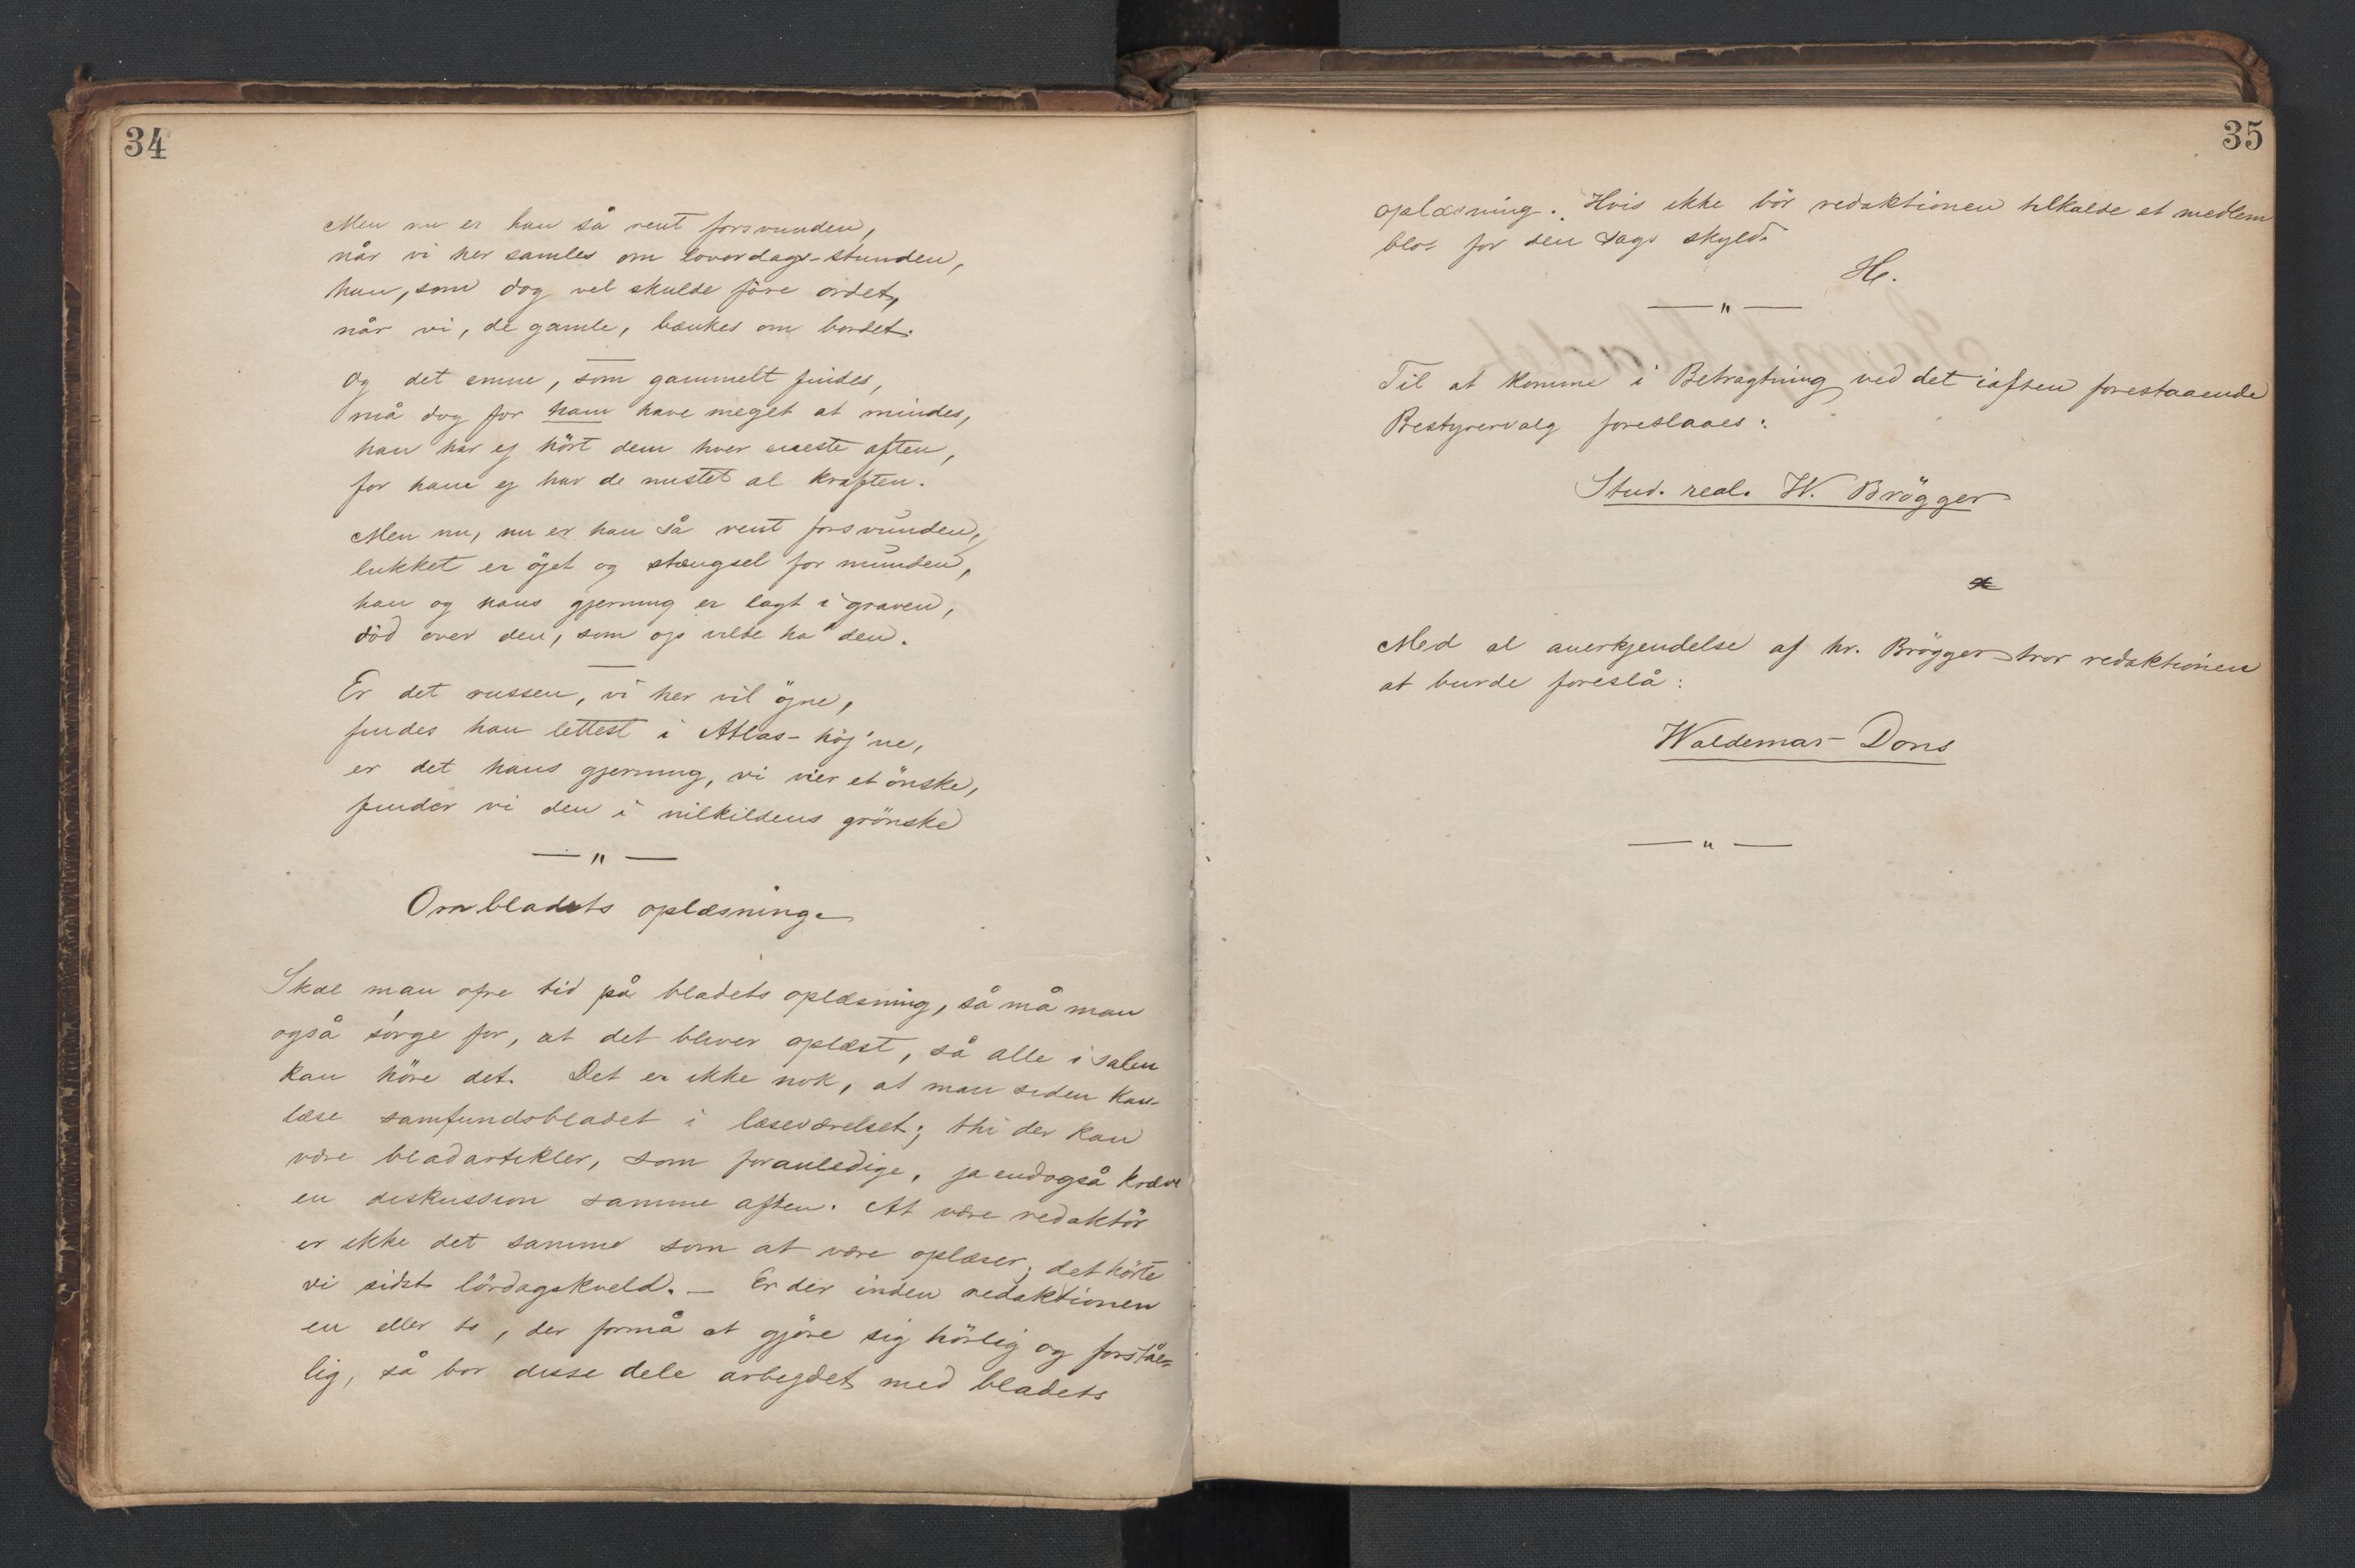 34
Men nu er han så rent forsvunden,
når vi her samles om lövordags-stunden,
han, som dog vel skulde före ordet,
når vi, de gamle, bænkes om bordet.
Og det emne, som gammelt findes,
må dog for ham have meget at mindes,
han har ej hört dem hver eneste aften,
for ham ej har de mistet al kraften.
Men nu, nu er han så rent forsvunden,
lukket er öjet og stængsel for munden,
han og hans gjerning er lagt i graven,
död over den, som op vilde ha' den.
Er det russen, vi her vil öjne,
findes han lettest i Atlas-höj'ne,
er det hans gjerning, vi vier et önske,
finder vi den i nilkildens grönske
— " —
Om bladets oplæsning.
Skal man ofre tid på bladets oplæsning, så må man
også sörge for, at det bliver oplæst, så alle i salen
kan höre det. Det er ikke nok, at man siden kan
læse samfundsbladet i læseværelset; thi der kan
være bladartikler, som foranledige, ja endogså kræve
en diskussion samme aften. At være redaktör
er ikke det samme som at være oplæser; det hörte
vi sidst lördagskveld. — Er der inden redaktionen
en eller to, der formå at gjöre sig hörlig og forståe-
lig, så bör disse dele arbejdet med bladets
35
oplæsning. Hvis ikke bör redaktionen tilkalde et medlem
blot for den sags skyld.
H.
— " —
Til at komme i Betragtning ved det iaften forestaaende
Bestyrervalg foreslaaes:
Stud. real. W. Brögger
x
Med al anerkjendelse af hr. Brögger tror redaktionen
at burde foreslå:
Waldemar Dons
— " —